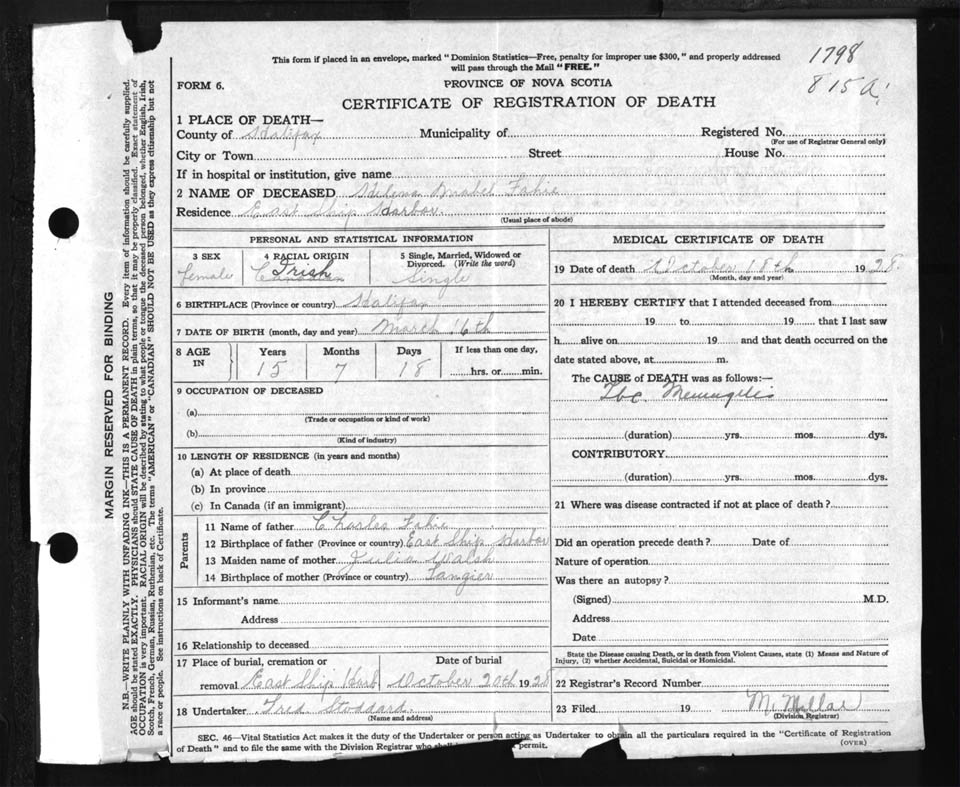 This form if placed in an envelope, marked "Dominion Statistics—Free, penalty for improper use $300," and properly addressed
will pass through the Mail "FREE."
1798
815a.
FORM 6.
PROVINCE OF NOVA SCOTIA
CERTIFICATE OF REGISTRATION OF DEATH
1 PLACE OF DEATH—
County of Halifax Municipality of Registered No.
(For use of Registrar General only)
City or Town Street House No.
If in hospital or institution, give name
2 NAME OF DECEASED Helena Mabel Fahie
Residence East Ship Harbor.
(Usual place of abode)
PERSONAL AND STATISTICAL INFORMATION
3 SEX 4 RACIAL ORIGIN 5 Single, Married, Widowed or
Divorced. (Write the word)
female Irish Single
6 BIRTHPLACE (Province or country) Halifax
7 DATE OF BIRTH (month, day and year) March 16th
8 AGE IN Years Months Days If less than one day,
15 7 18 hrs. or min.
9 OCCUPATION OF DECEASED
(a)
(Trade or occupation or kind of work)
(b)
(Kind of industry)
10 LENGTH OF RESIDENCE (in years and months)
(a) At place of death
(b) In province
(c) In Canada (if an immigrant)
Parents
11 Name of father Charles Fahie
12 Birthplace of father (Province or country) East Ship Harbor
13 Maiden name of mother Julia Walsh
14 Birthplace of mother (Province or country) Tangier
15 Informant's name
Address
16 Relationship to deceased
17 Place of burial, cremation or Date of burial
removal East Ship Harb October 20th 1928
18 Undertaker Fred Stoddard.
(Name and address)
MEDICAL CERTIFICATE OF DEATH
19 Date of death October 18th 1928.
(Month, day and year)
20 I HEREBY CERTIFY that I attended deceased from
19 to 19 that I last saw
h alive on 19 and that death occurred on the
date stated above, at m.
The CAUSE of DEATH was as follows:—
Tbc. Meningitis
(duration) yrs. mos. dys.
CONTRIBUTORY
(duration) yrs. mos. dys.
21 Where was disease contracted if not at place of death?
Did an operation precede death? Date of
Nature of operation
Was there an autopsy?
(Signed) M.D.
Address
Date
State the Disease causing Death, or in death from Violent Causes, state (1) Means and Nature of
Injury, (2) whether Accidental, Suicidal or Homicidal.
22 Registrar's Record Number
23 Filed 19 M. Millar
(Division Registrar)
SEC. 46—Vital Statistics Act makes it the duty of the Undertaker or person acting as Undertaker to obtain all the particulars required in the "Certificate of Registration
of Death" and to file the same with the Division Registrar who permit.
(OVER)
MARGIN RESERVED FOR BINDING
N.B.—WRITE PLAINLY WITH UNFADING INK—THIS IS A PERMANENT RECORD. Every item of information should be carefully supplied.
AGE should be stated EXACTLY. PHYSICIANS should STATE CAUSE OF DEATH in plain terms, so that it may be properly classified. Exact statement of
OCCUPATION is very important. RACIAL ORIGIN will be described by stating to what people or tongue the deceased person belonged, whether English, Irish,
Scotch, French, German, Russian, Ruthenian, etc. The terms "AMERICAN" or "CANADIAN" SHOULD NOT BE USED as they express citizenship but not
a race or people. See instructions on back of Certificate.